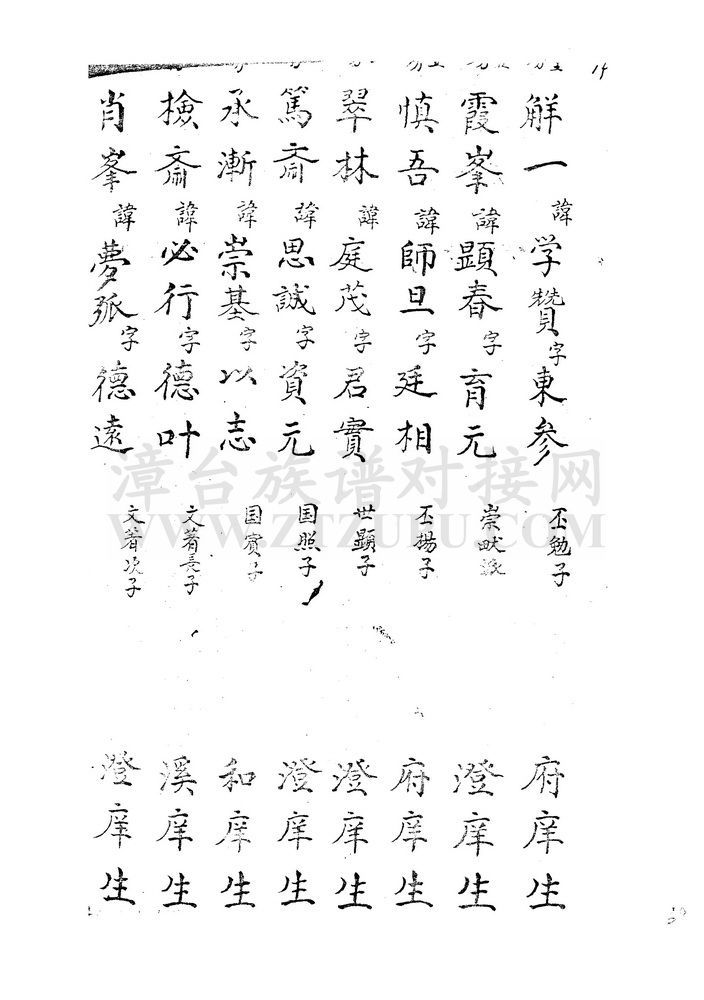 解一諱学贊字東參 丕勉子 府庠生
霞峯諱顕春字育元 崇畎派 澄庠生
慎吾諱師旦字廷相 丕揚子 府庠生
翠林諱庭茂字君實 世顕子 澄庠生
篤斎諱思誠字資元 国照子 澄庠生
承漸諱崇基字以志 国賓子 和庠生
檢斎諱必行字德叶 文著長子 溪庠生
肖峯諱夢弧字德遠 文著次子 澄庠生
漳台族谱对接网
WWW.ZTZUPU.COM